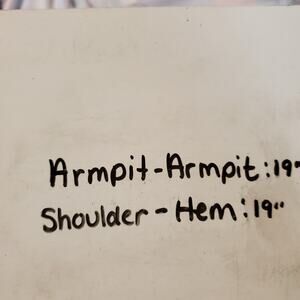 Armpit-Armpit:19"
Shoulder-Hem:19"